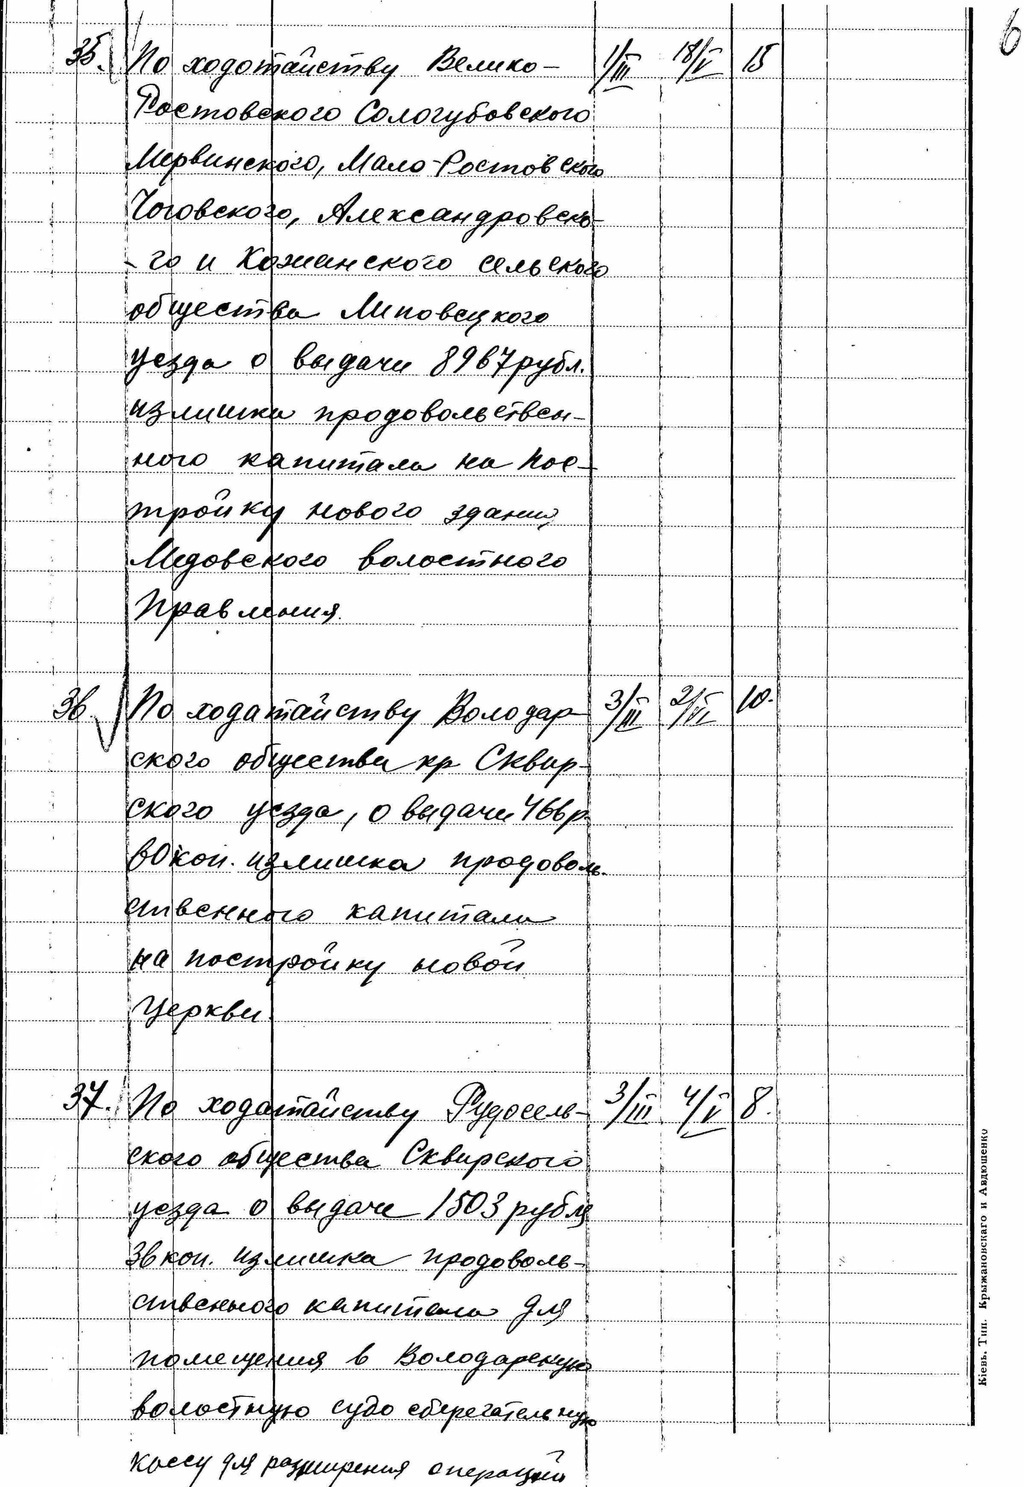 6
35. По ходотайству Велико- 1/III 18/V 15
Ростовского Сологубовского
Мервинского, Мало-Ростовского
Чоговского, Александровско-
-го и Кожанского сельского
общества Липовецкого
уезда о выдачи 8967 рубл.
излишка продовольствен-
ного капитала на пос-
тройку нового здания
Медовского волостного
Правления.
36. По ходатайству Володар- 3/III 2/VI 10.
ского общества кр Сквир-
ского уезда, о выдачи 466 р.
60 коп. излишка продоволь-
ственного капитала
на постройку новой
Церкви.
37. По ходатайству Рудосель- 3/III 4/V 8.
ского общества Сквирского
уезда о выдаче 1503 рубля
36 коп. излишка продоволь-
ственного капитала для
помещения в Володарскую
волостную судо сберегательную
кассу для расширения операций
Кіевъ. Тип. Крыжановскаго и Авдюшенко